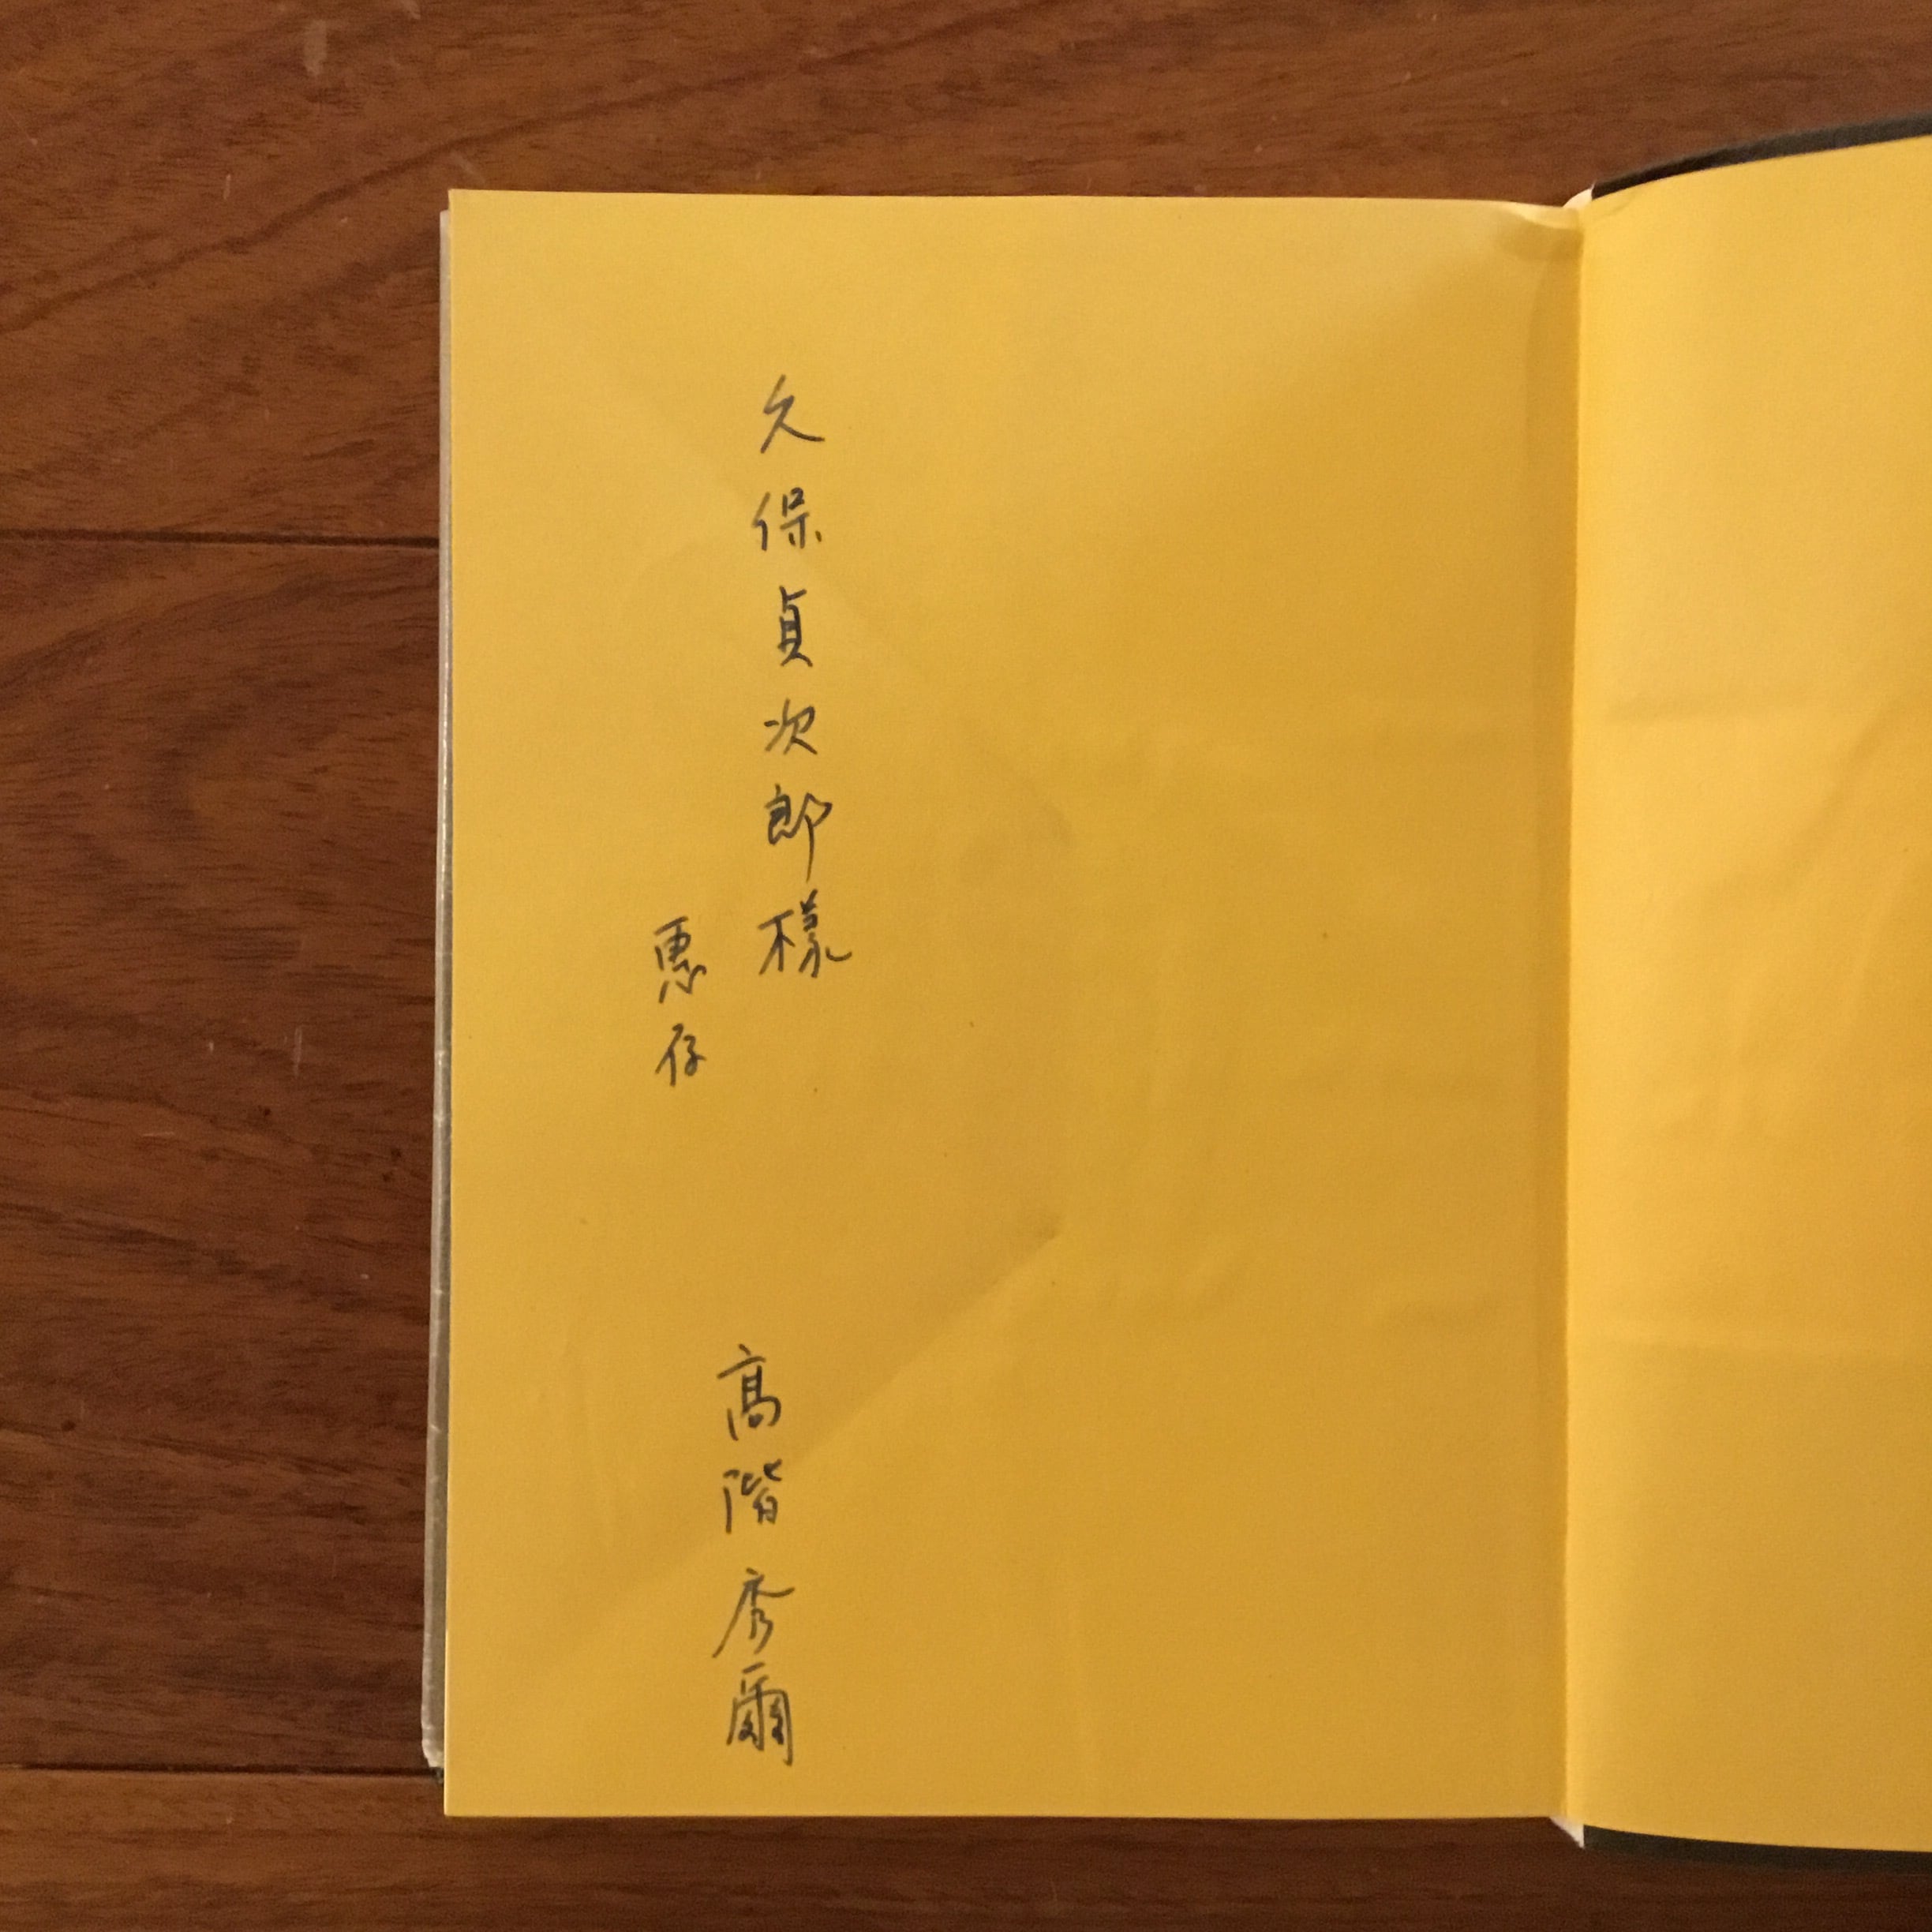 久保貞次郎様
恵存
高階秀爾